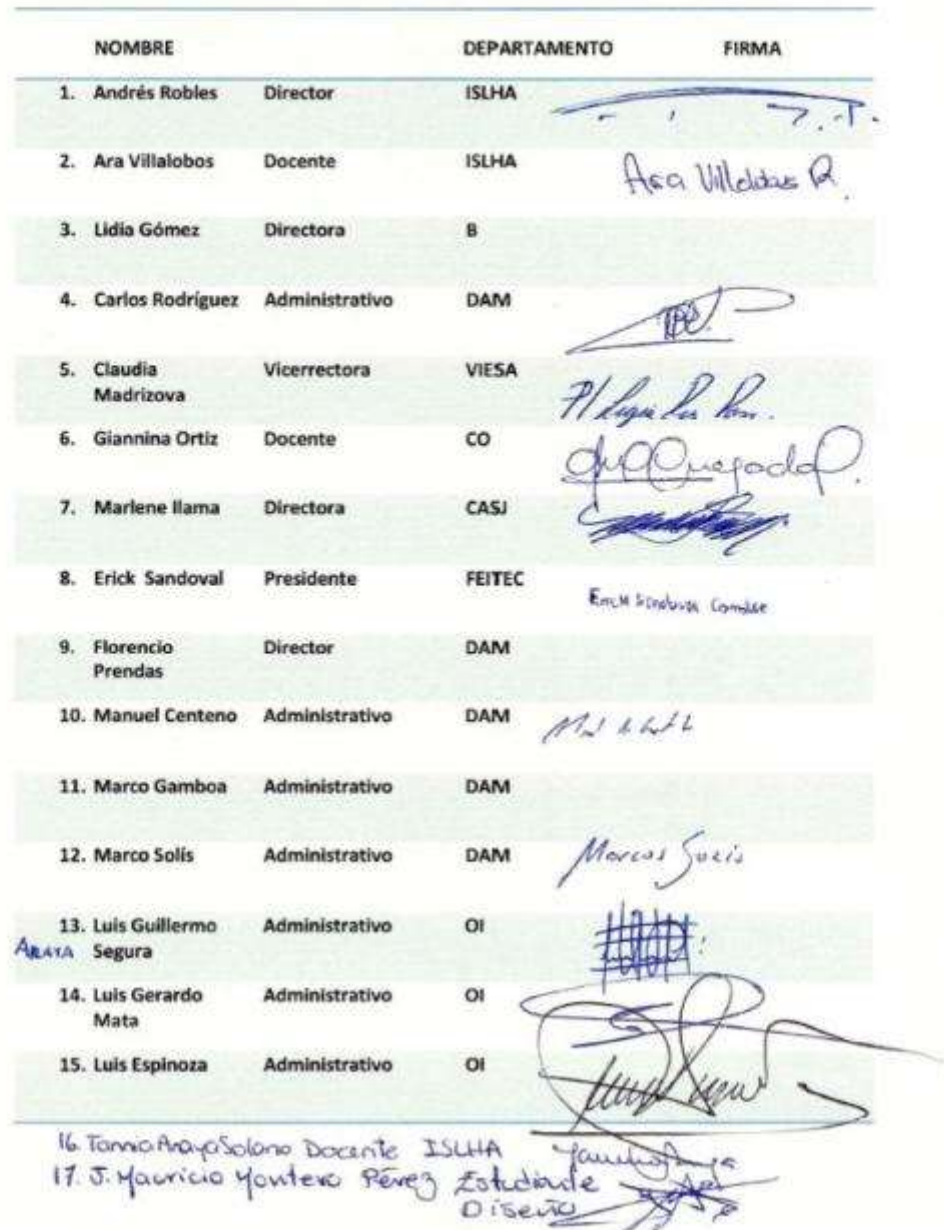 NOMBRE DEPARTAMENTO FIRMA
1. Andrés Robles Director ISLHA
2. Ara Villalobos Docente ISLHA Ara Villalobos R.
3. Lidia Gómez Directora B
4. Carlos Rodríguez Administrativo DAM
5. Claudia Vicerrectora VIESA
Madrizova
P/
6. Giannina Ortiz Docente CO
7. Marlene Ilama Directora CASJ
8. Erick Sandoval Presidente FEITEC
Erick Sandoval
9. Florencio Director DAM
Prendas
10. Manuel Centeno Administrativo DAM
11. Marco Gamboa Administrativo DAM
12. Marco Solís Administrativo DAM Marcos Solis
13. Luis Guillermo Administrativo OI
ARAYA Segura
14. Luis Gerardo Administrativo OI
Mata
15. Luis Espinoza Administrativo OI
16. Tannia Araya Solano Docente ISLHA
17. J. Mauricio Montero Pérez Estudiante
Diseño